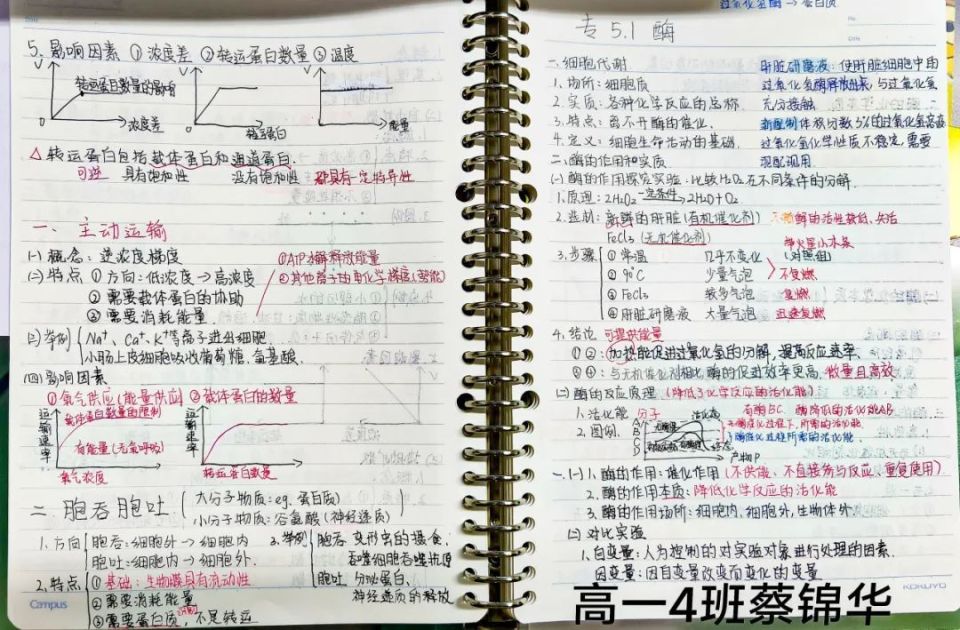 5. 影响因素 ① 浓度差 ② 转运蛋白数量 ③ 温度
V V V
转运蛋白数量的限制
浓度差 转运蛋白 能量
△ 转运蛋白包括载体蛋白和通道蛋白.
可逆 具有饱和性 没有饱和性 都具有一定特异性
一、主动运输
(一) 概念: 逆浓度梯度
①ATP水解释放能量
(二) 特点 ① 方向: 低浓度 → 高浓度
②其他离子的电化学梯度(势能)
② 需要载体蛋白的协助
③ 需要消耗能量
(三) 举例 Na⁺、Ca⁺、K⁺等离子进出细胞
小肠上皮细胞吸收葡萄糖、氨基酸.
(四) 影响因素
①氧气供应(能量供应) ②载体蛋白的数量
运输速率 载体蛋白数量的限制 运输速率
有能量(无氧呼吸)
氧气浓度 转运蛋白数量
二、胞吞胞吐
大分子物质: eg. 蛋白质
小分子物质: 谷氨酸(神经递质)
1. 方向 胞吞: 细胞外 → 细胞内
胞吐: 细胞内 → 细胞外.
2. 特点 ① 基础: 生物膜具有流动性
② 需要消耗能量
③ 需要蛋白质, 不是转运
3. 举例 胞吞 变形虫的摄食.
吞噬细胞吞噬抗原
胞吐 分泌蛋白.
神经递质的释放
Campus
过氧化氢酶 → 蛋白质
专 5.1 酶
一. 细胞代谢
1. 场所: 细胞质
2. 实质: 各种化学反应的总称
3. 特点: 离不开酶的催化.
4. 定义: 细胞生命活动的基础.
肝脏研磨液: 使肝脏细胞中的
过氧化氢酶释放出来, 与过氧化氢
充分接触
新配制体积分数3%的过氧化氢溶液
过氧化氢化学性质不稳定, 需要
现配现用.
二、酶的作用和实质
(一) 酶的作用探究实验: 比较H₂O₂在不同条件的分解.
1. 原理: 2H₂O₂ 一定条件→ 2H₂O+O₂
2. 选制: 新鲜的肝脏 (有机催化剂) 酶的活性较低, 失活
FeCl₃ (无机催化剂)
带火星小木条
3. 步骤 ① 常温 几乎不变化 (对照组)
② 90℃ 少量气泡 不复燃
③ FeCl₃ 较多气泡 复燃
④ 肝脏研磨液 大量气泡 迅速复燃
4. 结论 可提供能量
①②: 加热能促进过氧化氢的分解, 提高反应速率.
③④: 与无机催化剂相比酶的促进效率更高.
(二) 酶的反应原理 (降低了化学反应的活化能)
1. 活化能 分子 活化能
有酶BC. 酶降低的活化能AB
2. 图例. A B C D
无酶催化过程下, 所需的活化能
酶催化过程所需的活化能
产物P
一、(一) 1. 酶的作用: 催化作用 (不供能、不直接参与反应、重复使用)
2. 酶的作用本质: 降低化学反应的活化能
3. 酶的作用场所: 细胞内、细胞外, 生物体外.
(二) 对比实验
1. 自变量: 人为控制的对实验对象进行处理的因素.
因变量: 因自变量改变而变化的变量
KOKUYO
高一4班蔡锦华